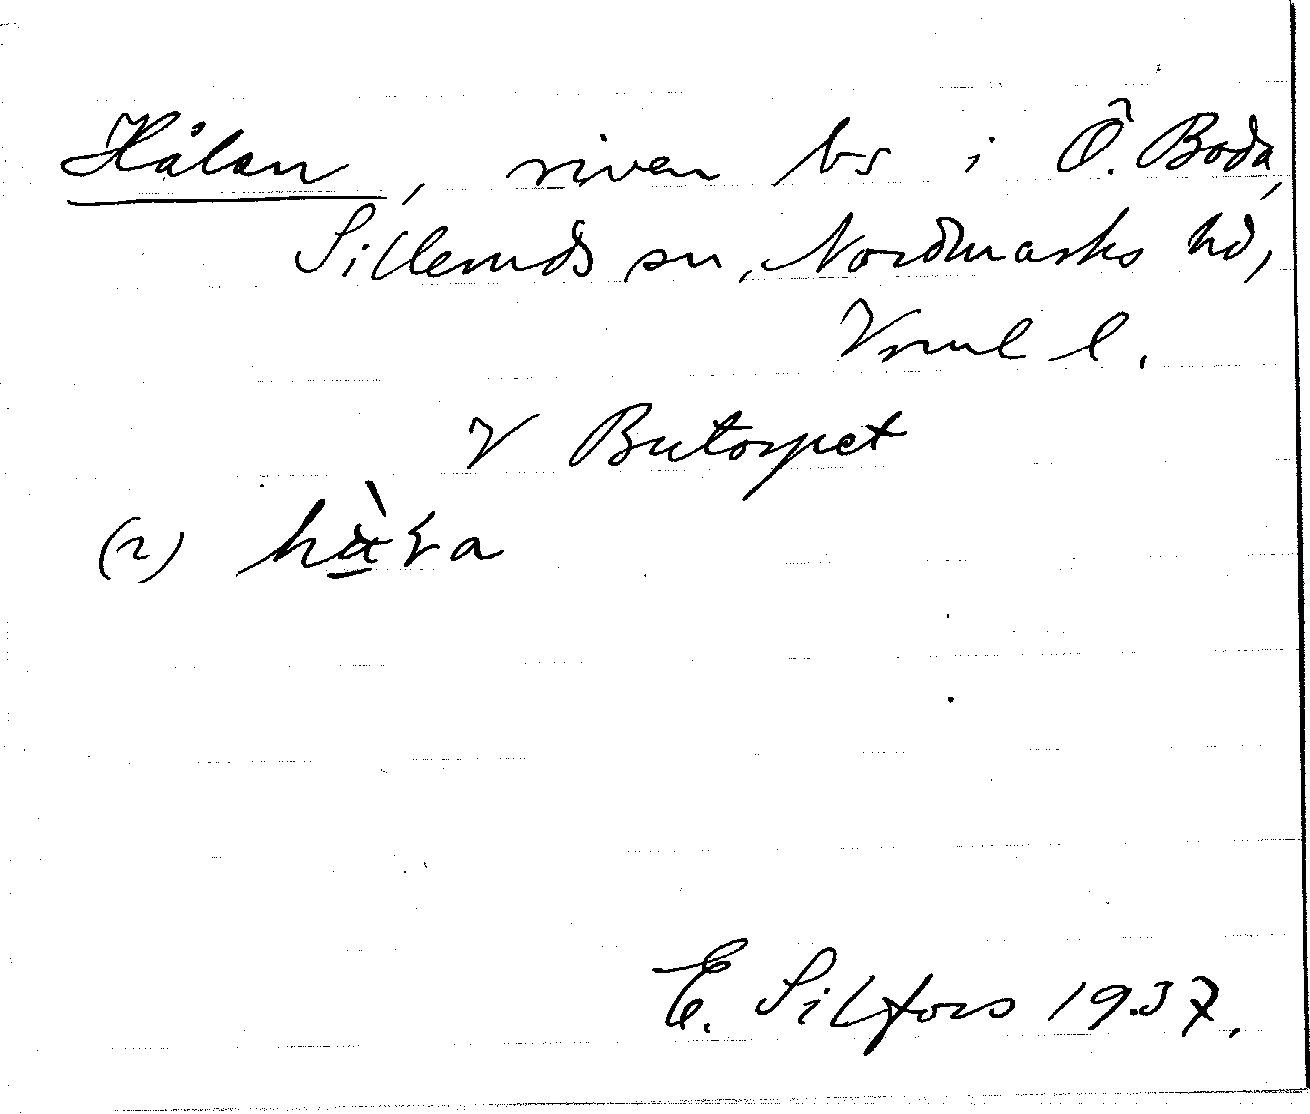 Hålan, riven bs i Ö. Boda,
Silleruds sn, Nordmarks hd,
Vrml l.
V Butorpet
(2)
E. Silfors 1937.